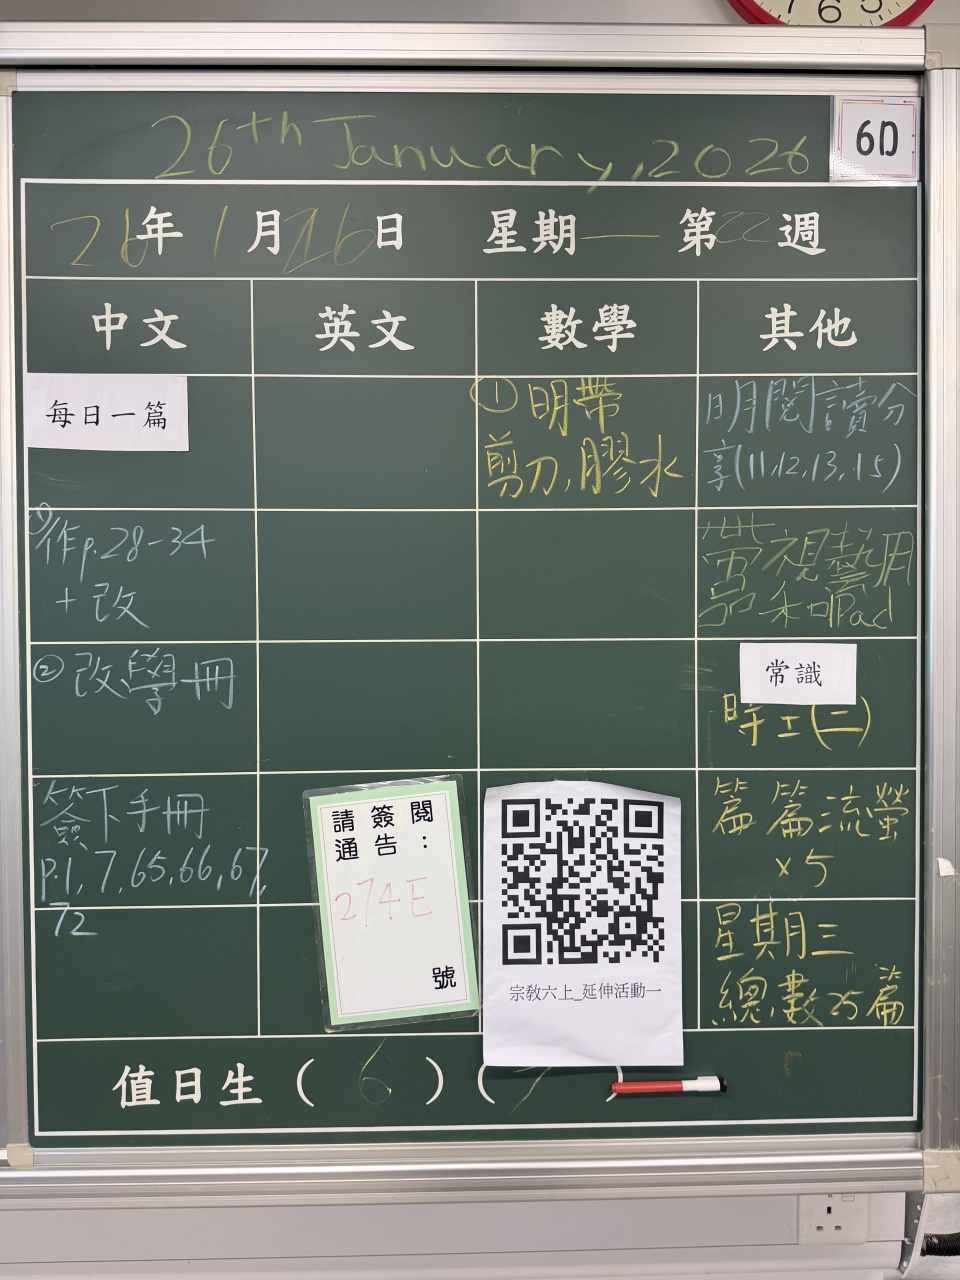 7 6 5
26th January, 2026
6D
26年1月26日 星期一 第22週
中文 英文 數學 其他
每日一篇
①作p.28-34
+改
②改學冊
簽下手冊
p.1,7,65,66,67,
72
①明帶
剪刀,膠水
明閱讀分
享(11,12,13,15)
帶視藝用
和iPad
常識
時工(二)
篇篇流螢
x5
星期三
總數25篇
請簽閱
通告：
274E
號
宗教六上_延伸活動一
值日生(6)(7)